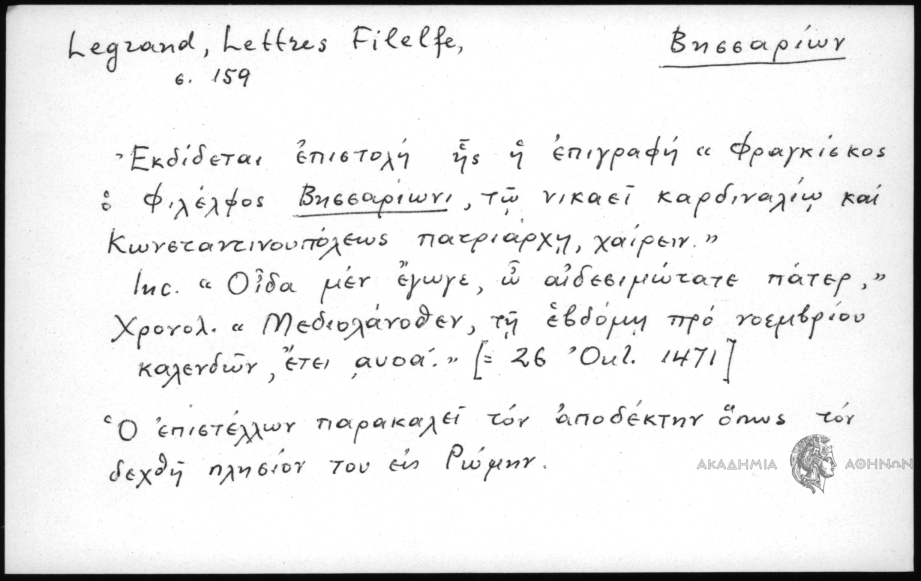 Legrand, Lettres Filelfe, Βησσαρίων
σ. 159
Ἐκδίδεται ἐπιστολή ἧς ἡ ἐπιγραφή « Φραγκίσκος
ὁ Φιλέλφος Βησσαρίωνι, τῷ νικαεῖ καρδιναλίῳ καί
Κωνσταντινουπόλεως πατριάρχῃ, χαίρειν. »
Inc. « Οἶδα μέν ἔγωγε, ὦ αἰδεσιμώτατε πάτερ, »
Χρονολ. « Μεδιολάνοθεν, τῇ ἑβδόμῃ πρό νοεμβρίου
καλενδῶν, ἔτει ͵αυοα΄. » [= 26 Ὀκτ. 1471]
Ὁ ἐπιστέλλων παρακαλεῖ τόν ἀποδέκτην ὅπως τόν
δεχθῇ πλησίον του εἰς Ρώμην.
ΑΚΑΔΗΜΙΑ ΑΘΗΝΩΝ